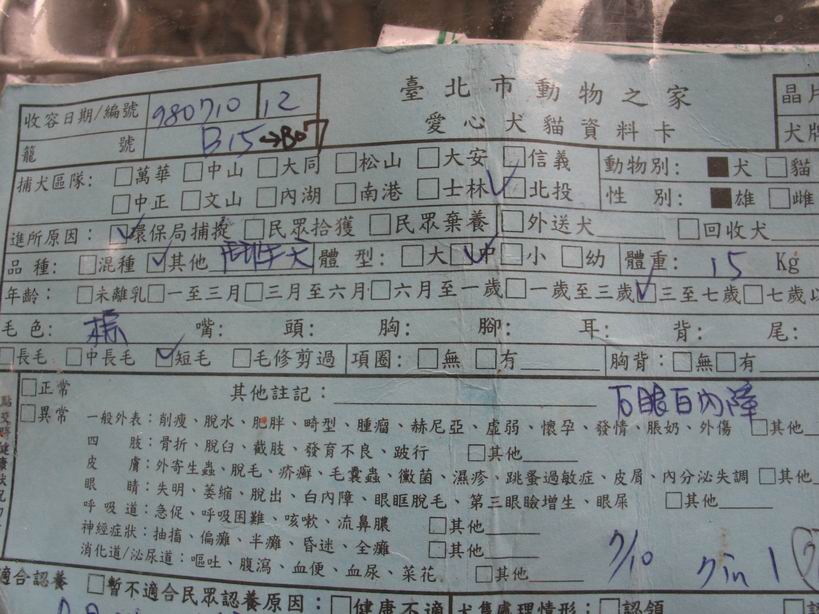 臺北市動物之家
愛心犬貓資料卡
晶片
犬牌
收容日期/編號 980710 12
籠 號 B15→B07
捕犬區隊: □萬華 □中山 □大同 □松山 □大安 □信義 動物別: ■犬 □貓
□中正 □文山 □內湖 □南港 □士林 ☑北投 性 別: ■雄 □雌
進所原因: ☑環保局捕捉 □民眾拾獲 □民眾棄養 □外送犬 □回收犬
品種: □混種 ☑其他 鬥牛犬 體型: □大 ☑中 □小 □幼 體重: 15 Kg
年齡: □未離乳 □一至三月 □三月至六月 □六月至一歲 □一歲至三歲 ☑三至七歲 □七歲以
毛色: 棕 嘴: 頭: 胸: 腳: 耳: 背: 尾:
□長毛 □中長毛 ☑短毛 □毛修剪過 項圈: □無 □有 胸背: □無 □有
□正常 其他註記: 右眼白內障
□異常 一般外表:削瘦、脫水、肥胖、畸型、腫瘤、赫尼亞、虛弱、懷孕、發情、脹奶、外傷 □其他
四 肢:骨折、脫臼、截肢、發育不良、跛行 □其他
皮 膚:外寄生蟲、脫毛、疥癬、毛囊蟲、黴菌、濕疹、跳蚤過敏症、皮屑、內分泌失調 □其他
眼 睛:失明、萎縮、脫出、白內障、眼眶脫毛、第三眼瞼增生、眼屎 □其他
呼吸道:急促、呼吸困難、咳嗽、流鼻膿 □其他
神經症狀:抽搐、偏癱、半癱、昏迷、全癱 □其他
消化道/泌尿道:嘔吐、腹瀉、血便、血尿、菜花 □其他 7/10
適合認養 □暫不適合民眾認養原因: □健康不適 犬隻處理情形: □認領